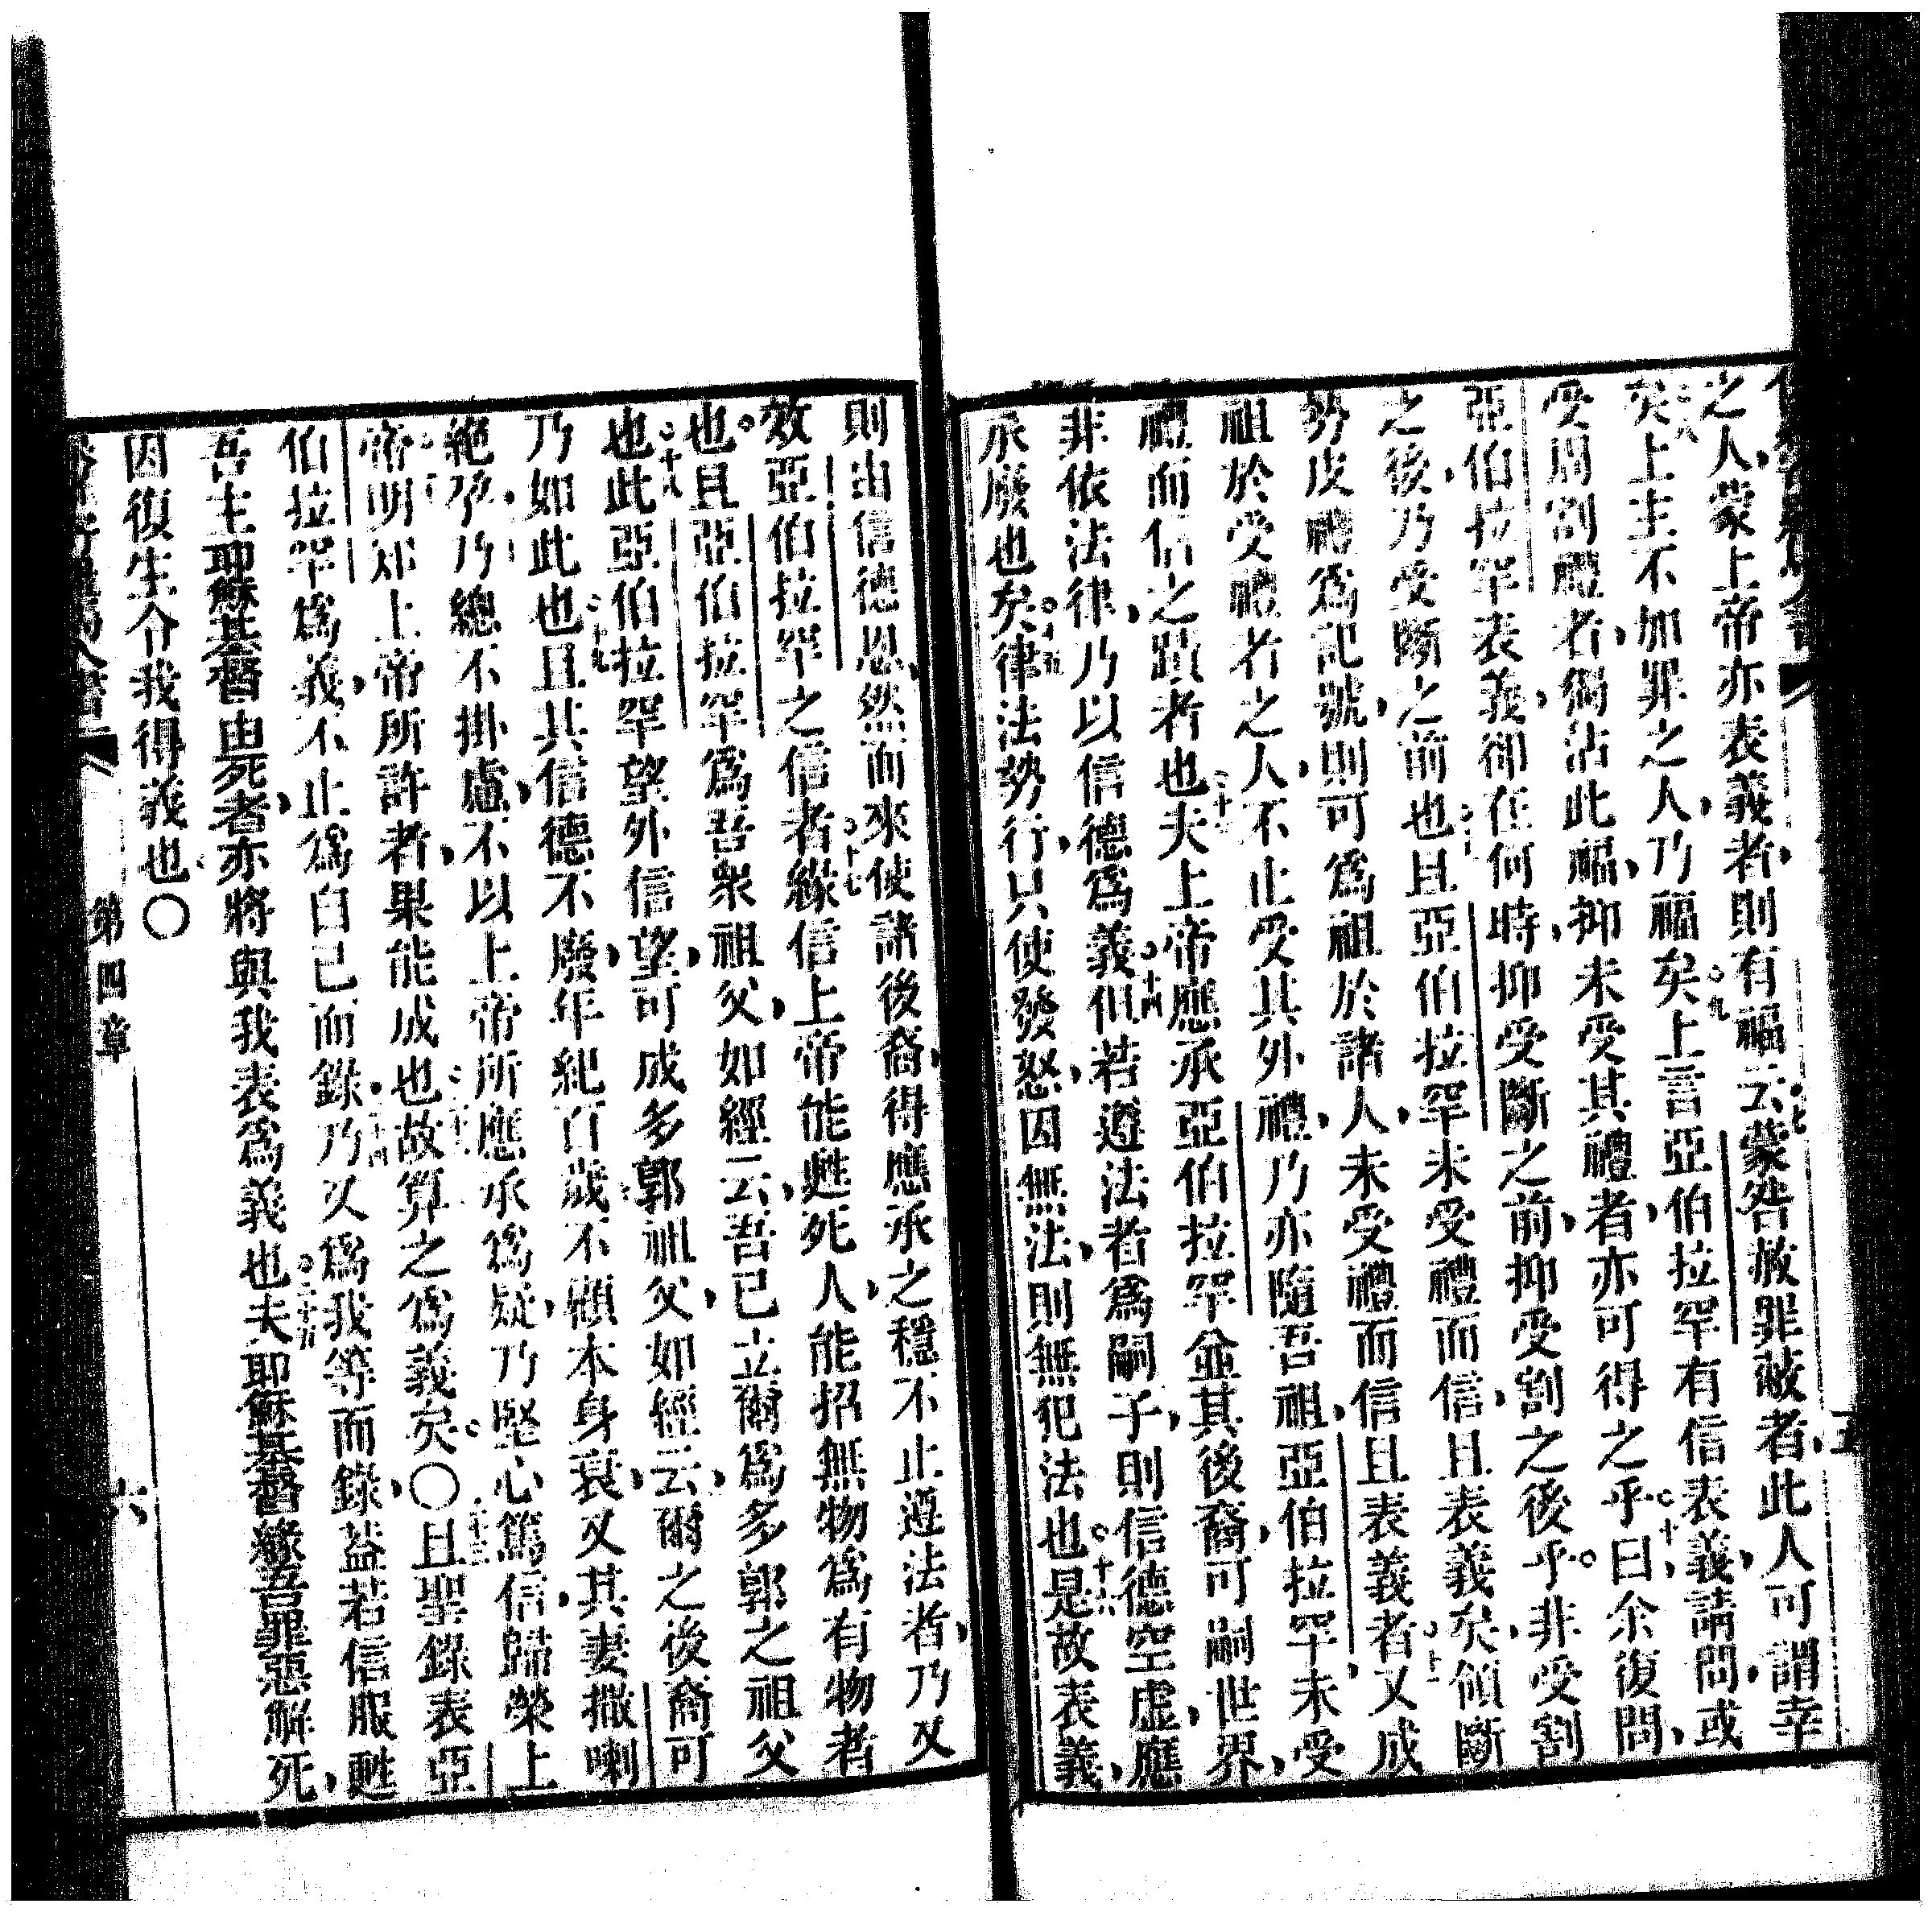 之人、蒙上帝亦表義者、則有福云蒙咎赦罪蔽者、此人可謂幸
矣上主不加罪之人、乃福矣上言亞伯拉罕有信表義、請問、或
受周割禮者、獨沾此福、抑未受其禮者、亦可得之乎曰余復問、
亞伯拉罕表義、卻在何時、抑受斷之前、抑受割之後乎。非受割
之後、乃受斷之前也且亞伯拉罕未受禮而信、且表義矣、領斷
勢皮禮為記號、則可為祖於諸人、未受禮而信且表義者又成
祖於受禮者之人、不止受其外禮、乃亦隨吾祖、亞伯拉罕、未受
禮而信之蹟者也夫上帝應承亞伯拉罕並其後裔、可嗣世界、
非依法律、乃以信德為義但若遵法者為嗣子、則信德空虛、應
承廢也矣律法勢行、只使發怒、因無法、則無犯法也是故表義、
則由信德恩、然而來使諸後裔、得應承之穩不止遵法者、乃又
效亞伯拉罕之信者緣信上帝能甦死人、能招無物為有物者
也。且亞伯拉罕為吾衆祖父、如經云、吾已立爾為多郭之祖父
也此亞伯拉罕望外信望、可成多郭祖父、如經云、爾之後裔可
乃如此也且其信德不廢、年紀百歲不顧本身衰、又其妻撒喇
絕孕、乃總不掛慮、不以上帝所應承為疑、乃堅心篤信、歸榮上
帝明知上帝所許者、果能成也故算之為義矣〇且聖錄表亞
伯拉罕為義、不止為自己而錄、乃又為我等而錄、蓋若信服甦
吾主耶穌基督由死者、亦將與我表為義也夫耶穌基督緣吾罪惡解死、
因復生令我得義也〇
第四章
六